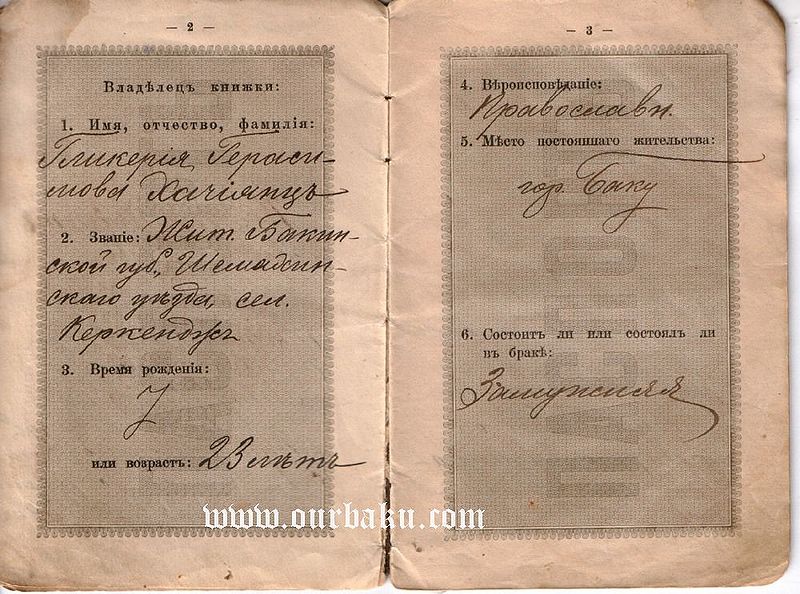 — 2 —
Владѣлецъ книжки:
1. Имя, отчество, фамилія:
Гликерія Гераси-
мова Хачіянцъ
2. Званіе: Жит. Бакин-
ской губ., Шемахин-
скаго уѣзда, сел.
Керкенджъ
3. Время рожденія:
или возрастъ: 23 лѣтъ
— 3 —
4. Вѣроисповѣданіе:
Православн.
5. Мѣсто постояннаго жительства:
гор. Баку
6. Состоитъ ли или состоялъ ли
въ бракѣ:
Замужняя
www.ourbaku.com